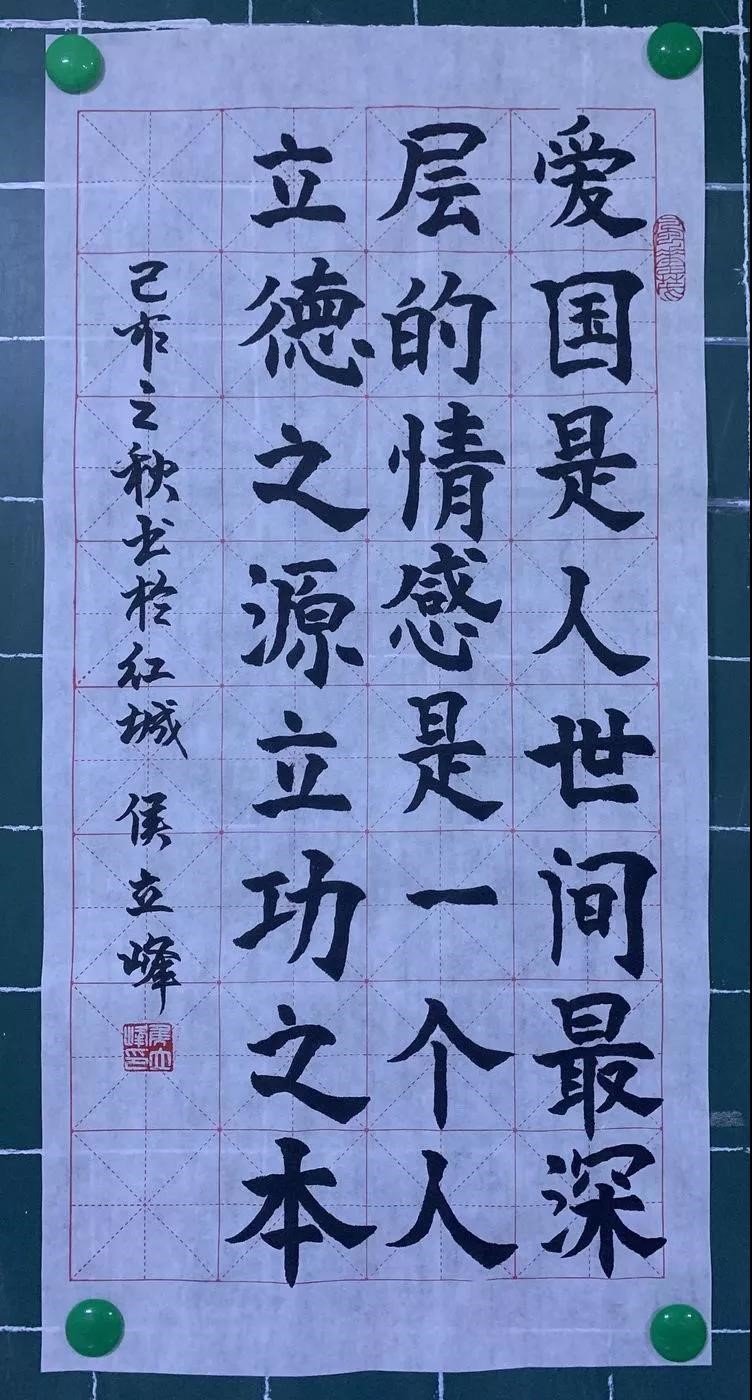 爱国是人世间最深
层的情感是一个人
立德之源立功之本
己亥之秋书於红城 侯立峰